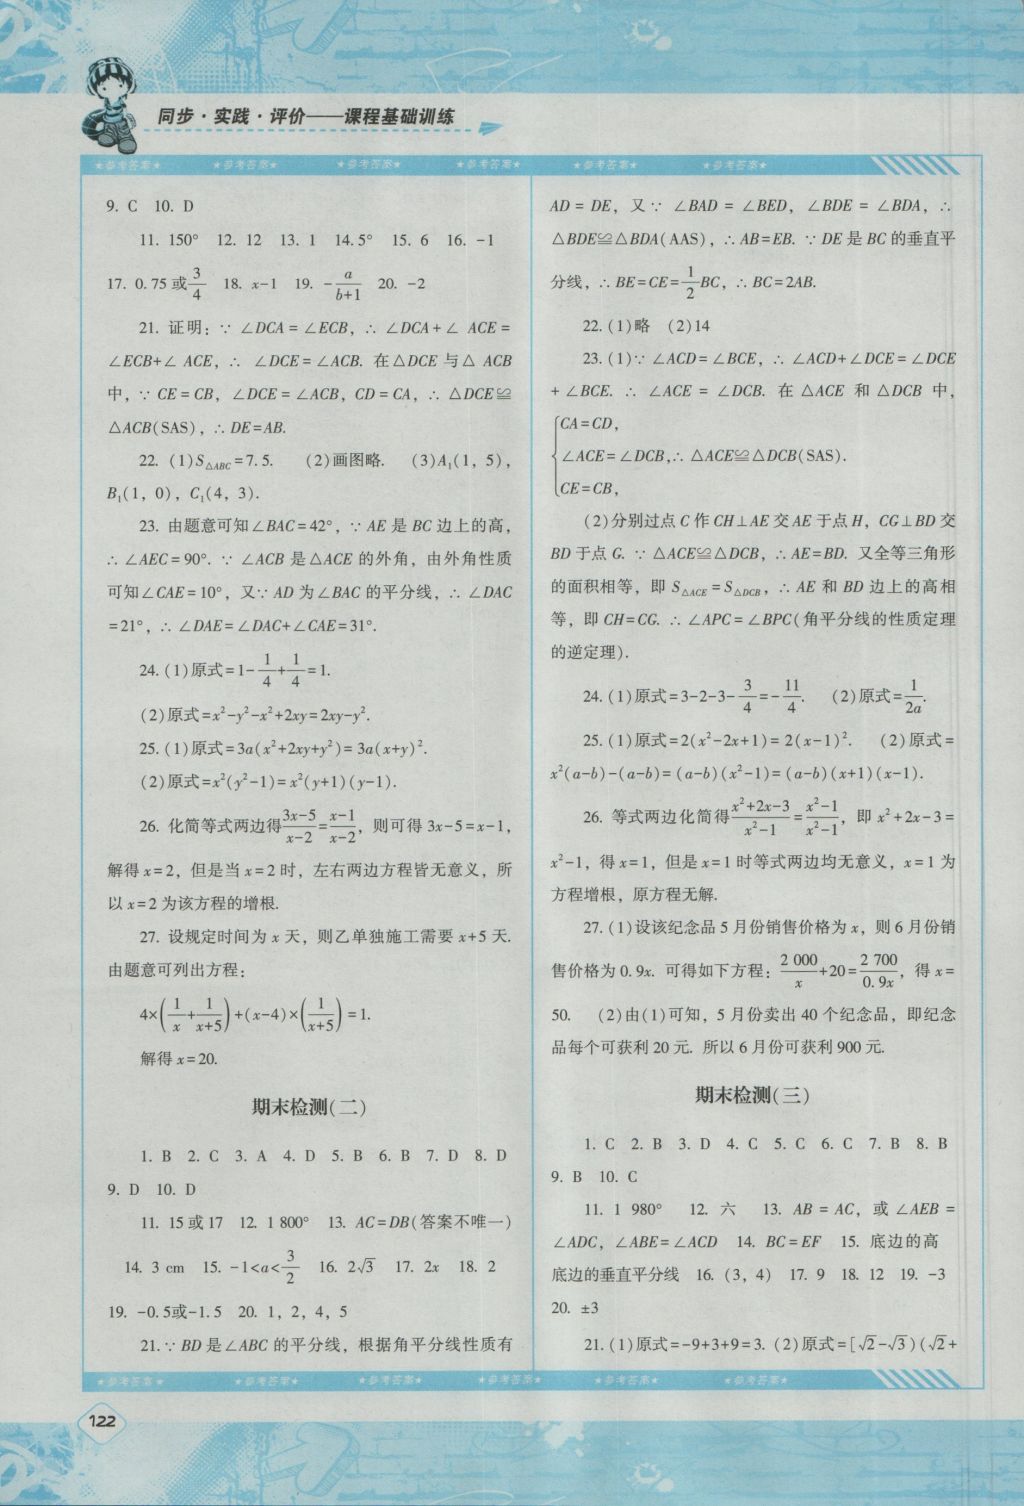 同步·实践·评价——课程基础训练
★参考答案★ ★参考答案★ ★参考答案★ ★参考答案★ ★参考答案★ ★参考答案★
9. C 10. D
11. 150° 12. 12 13. 1 14. 5° 15. 6 16. -1
17. 0.75 或 3/4 18. x-1 19. -a/(b+1) 20. -2
21. 证明：∵ ∠DCA = ∠ECB，∴ ∠DCA + ∠ ACE =
∠ECB+∠ ACE，∴ ∠DCE = ∠ACB. 在△DCE 与△ ACB
中，∵ CE = CB，∠DCE = ∠ACB，CD = CA，∴ △DCE≌
△ACB(SAS)，∴ DE=AB.
22. (1)S△ABC=7.5. (2)画图略. (3)A₁(1，5)，
B₁(1，0)，C₁(4，3).
23. 由题意可知∠BAC=42°，∵ AE 是 BC 边上的高，
∴ ∠AEC=90°. ∵ ∠ACB 是△ACE 的外角，由外角性质
可知∠CAE=10°，又∵ AD 为∠BAC 的平分线，∴ ∠DAC
=21°，∴ ∠DAE=∠DAC+∠CAE=31°.
24. (1)原式=1-1/4+1/4=1.
(2)原式=x²-y²-x²+2xy=2xy-y².
25. (1)原式=3a(x²+2xy+y²)=3a(x+y)².
(2)原式=x²(y²-1)=x²(y+1)(y-1).
26. 化简等式两边得(3x-5)/(x-2)=(x-1)/(x-2)，则可得 3x-5=x-1，
解得 x=2，但是当 x=2 时，左右两边方程皆无意义，所
以 x=2 为该方程的增根.
27. 设规定时间为 x 天，则乙单独施工需要 x+5 天.
由题意可列出方程：
4×(1/x+1/(x+5))+(x-4)×(1/(x+5))=1.
解得 x=20.
期末检测(二)
1. B 2. C 3. A 4. D 5. B 6. B 7. D 8. D
9. D 10. D
11. 15 或 17 12. 1 800° 13. AC=DB(答案不唯一)
14. 3 cm 15. -1<a<3/2 16. 2√3 17. 2x 18. 2
19. -0.5或-1.5 20. 1，2，4，5
21. ∵ BD 是∠ABC 的平分线，根据角平分线性质有
AD = DE，又∵ ∠BAD = ∠BED，∠BDE = ∠BDA，∴
△BDE≌△BDA(AAS)，∴ AB=EB. ∵ DE 是 BC 的垂直平
分线，∴ BE=CE=1/2BC，∴ BC=2AB.
22. (1)略 (2)14
23. (1)∵ ∠ACD=∠BCE，∴ ∠ACD+∠DCE=∠DCE
+∠BCE. ∴ ∠ACE = ∠DCB. 在△ACE 和△DCB 中，
CA=CD，
∠ACE=∠DCB，∴ △ACE≌△DCB(SAS).
CE=CB，
(2)分别过点 C 作 CH⊥AE 交 AE 于点 H，CG⊥BD 交
BD 于点 G. ∵ △ACE≌△DCB，∴ AE=BD. 又全等三角形
的面积相等，即 S△ACE=S△DCB，∴ AE 和 BD 边上的高相
等，即 CH=CG. ∴ ∠APC=∠BPC(角平分线的性质定理
的逆定理).
24. (1)原式=3-2-3-3/4=-11/4. (2)原式=1/2a.
25. (1)原式=2(x²-2x+1)=2(x-1)². (2)原式=
x²(a-b)-(a-b)=(a-b)(x²-1)=(a-b)(x+1)(x-1).
26. 等式两边化简得(x²+2x-3)/(x²-1)=(x²-1)/(x²-1)，即 x²+2x-3=
x²-1，得 x=1，但是 x=1 时等式两边均无意义，x=1 为
方程增根，原方程无解.
27. (1)设该纪念品 5 月份销售价格为 x，则 6 月份销
售价格为 0.9x. 可得如下方程：2 000/x+20=2 700/0.9x，得 x=
50. (2)由(1)可知，5 月份卖出 40 个纪念品，即纪念
品每个可获利 20 元. 所以 6 月份可获利 900 元.
期末检测(三)
1. C 2. B 3. D 4. C 5. C 6. C 7. B 8. B
9. B 10. C
11. 1 980° 12. 六 13. AB = AC，或 ∠AEB =
∠ADC，∠ABE=∠ACD 14. BC=EF 15. 底边的高
底边的垂直平分线 16. (3，4) 17. 9 18. 12 19. -3
20. ±3
21. (1)原式=-9+3+9=3. (2)原式=[√2-√3)(√2+
★参考答案★ ★参考答案★ ★参考答案★ ★参考答案★ ★参考答案★ ★参考答案★
122